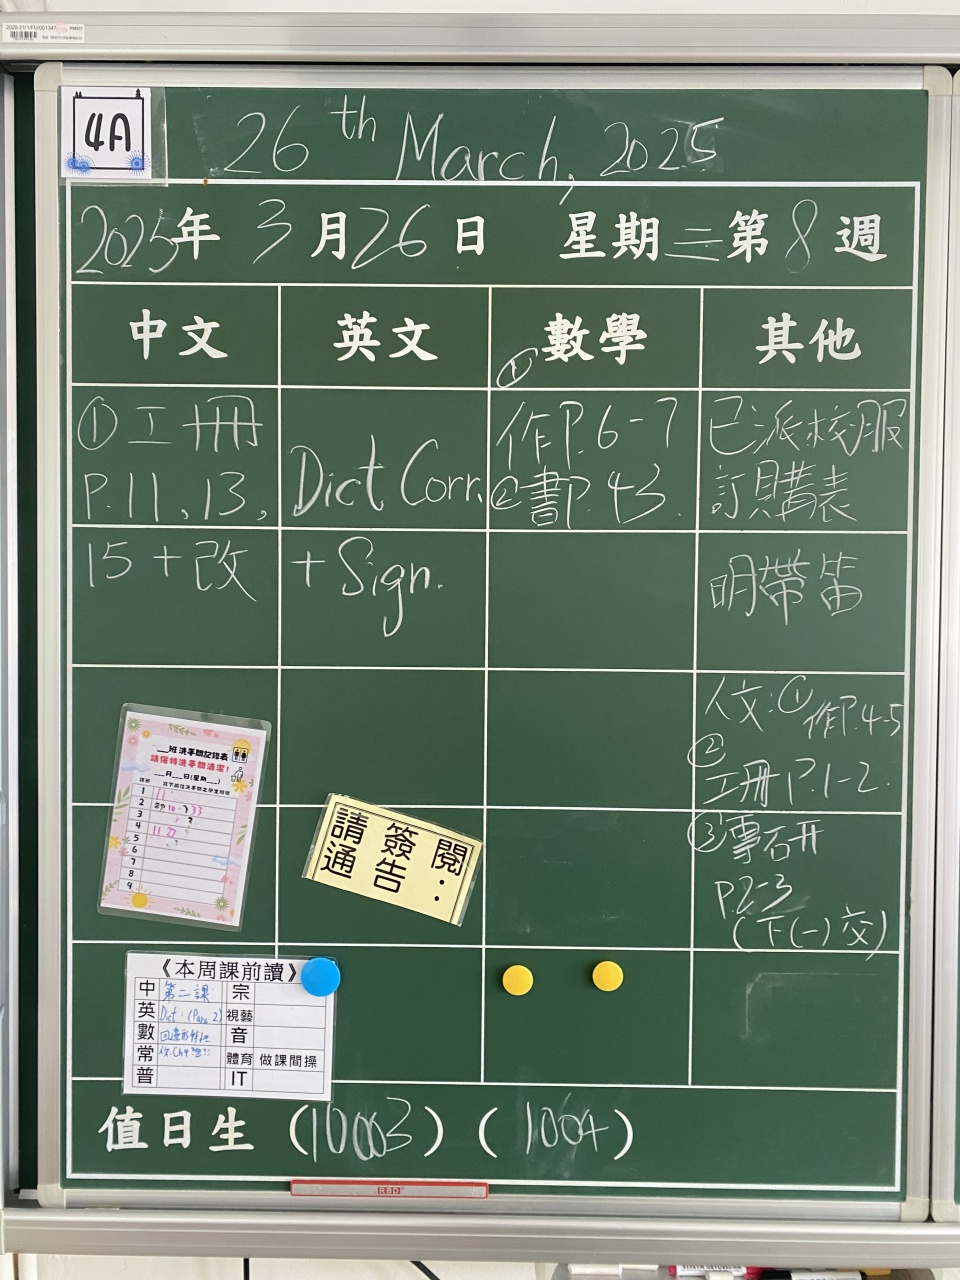 4A
26th March, 2025
2025年 3月26日 星期三第8週
中文 英文 數學 其他
①工冊
P.11, 13,
15 + 改
Dict. Corr.
+ Sign.
①
作P.6-7
②書P.43.
已派校服
訂購表
明帶笛
人文:①作P.4-5
②
工冊P.1-2.
③專研
P.2-3
(下(一)交)
班洗手間記錄表
請保持洗手間清潔!
月 日(星期 )
1 11
2
3
4
5
6
7
8
9
請簽閱:
通告
《本周課前讀》
中 第二課 宗
英 Dict. (Para 2) 視藝
數 音
常 體育 做課間操
普 IT
值日生 (10003) (1004)
RBD